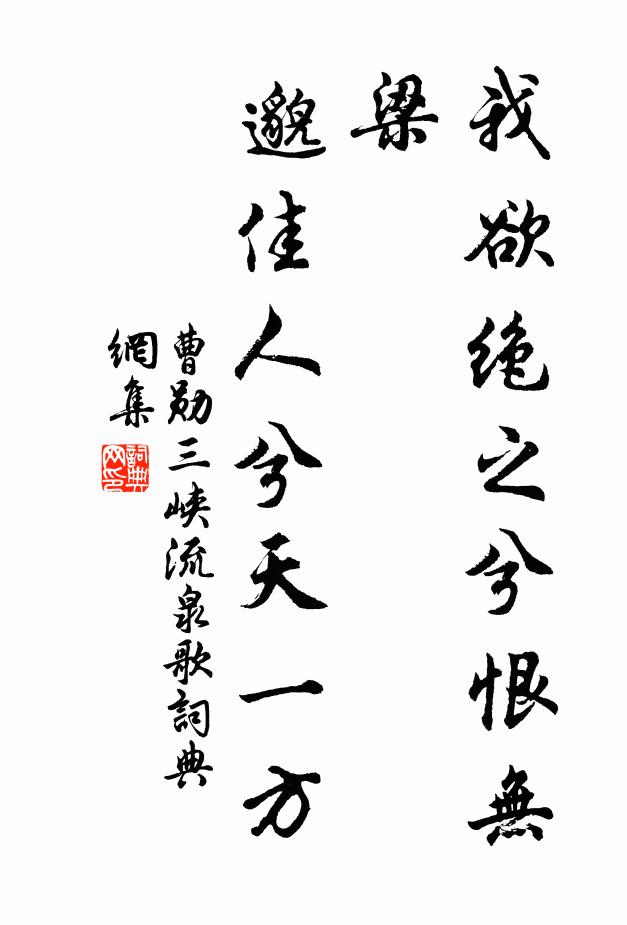 我欲绝之兮恨無
梁
邈佳人兮天一方
曹勛三峡流泉歌詞典
網集
詞典网印